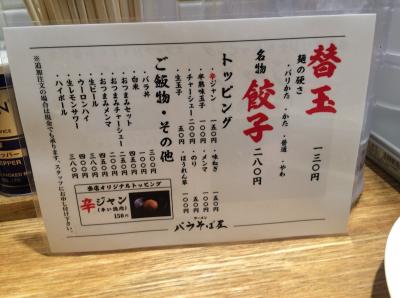 替玉 一三〇円
麺の硬さ
・バリかた ・かた ・普通 ・やわ
名物 餃子 二八〇円
トッピング
・辛ジャン 一五〇円
・半熟味玉子 一〇〇円
・チャーシュー 二〇〇円
・生玉子 五〇円
・味ねぎ 一五〇円
・メンマ 一〇〇円
・のり 五〇円
・ほうれん草 一〇〇円
ご飯物・その他
・バラ丼 三〇〇円
・白米 一〇〇円
・おつまみセット 四五〇円
・おつまみチャーシュー
・おつまみメンマ
・生ビール
・ウーロンハイ 三八〇円
・生レモンサワー
・ハイボール 三八〇円
※追加注文の場合は現金でも承ります。スタッフにお申し付け下さい。
当店オリジナルトッピング
辛ジャン
(辛い鶏肉)
150円
ラーメン
バラそば屋
PPER